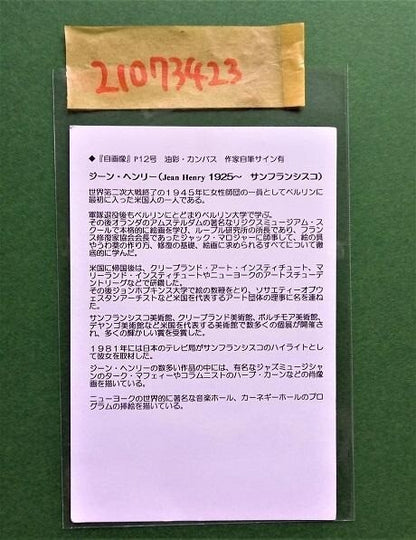 21073423
◆『自画像』P12号 油彩・カンバス 作家自筆サイン有
ジーン・ヘンリー(Jean Henry 1925～ サンフランシスコ)
世界第二次大戦終了の1945年に女性師団の一員としてベルリンに
最初に入った米国人の一人である。
軍隊退役後もベルリンにとどまりベルリン大学で学ぶ。
その後オランダのアムステルダムの著名なリジクスミュージアム・ス
クールで本格的に絵画を学び、ルーブル研究所の所長であり、フラン
ス修復家協会会長であったジャック・マロジャーに師事して、絵の具
やうわ薬の作り方、修復の基礎、絵画に求められるすべてについて徹
底的に学んだ。
米国に帰国後は、クリーブランド・アート・インスティチュート、マ
リーランド・インスティチュートやニューヨークのアートスチューデ
ントリーグなどで研鑽した。
その後ジョンホプキンス大学で絵の教鞭をとり、ソサエティーオブウ
ェスタンアーチストなど米国を代表するアート団体の理事に名を連ね
た。
サンフランシスコ美術館、クリーブランド美術館、ボルチモア美術館、
デヤンゴ美術館など米国を代表する美術館で数多くの個展が開催さ
れ、多くの輝かしい賞を受賞した。
1981年には日本のテレビ局がサンフランシスコのハイライトとし
て彼女を取材した。
ジーン・ヘンリーの数多い作品の中には、有名なジャズミュージシャ
ンのターク・マフィーやコラムニストのハーブ・カーンなどの肖像
画を描いている。
ニューヨークの世界的に著名な音楽ホール、カーネギーホールのプロ
グラムの挿絵を描いている。